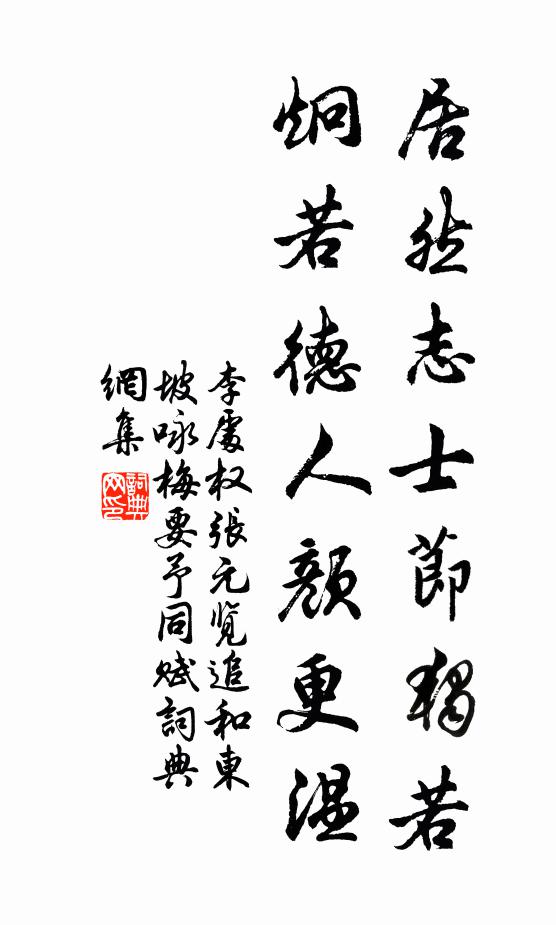 居然志士節獨若
炯若德人顏更溫
李處权張元覽追和東
坡咏梅要予同賦詞典
網集
詞典網印